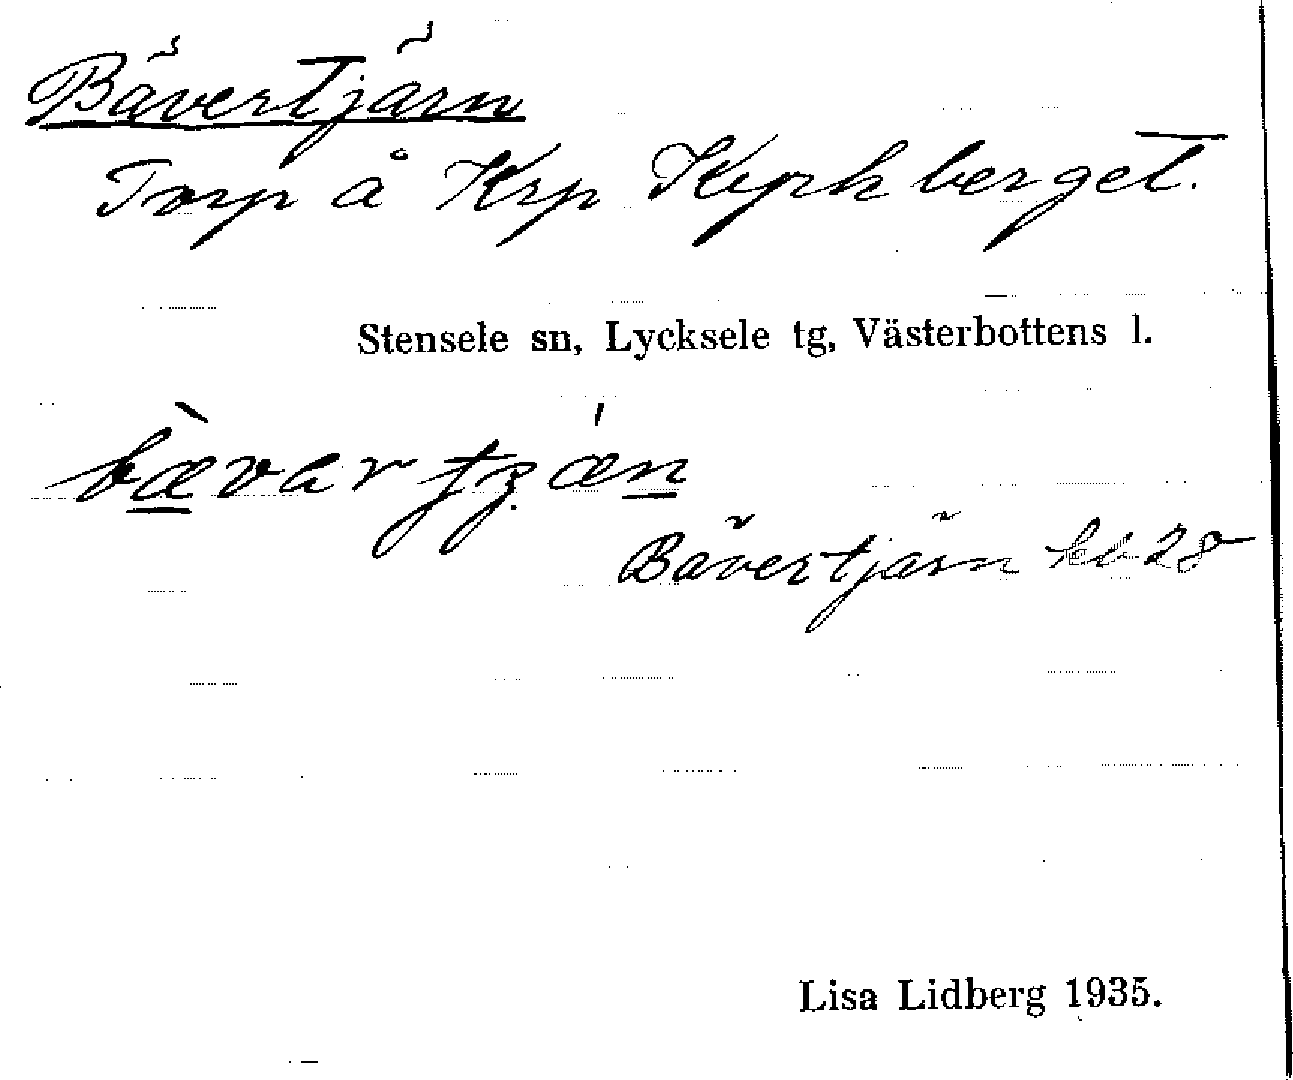 Bävertjärn
Torp å Krp Kyrkberget.
Stensele sn, Lycksele tg, Västerbottens l.
bævar tʒæn
Bävertjärn kb 28
Lisa Lidberg 1935.